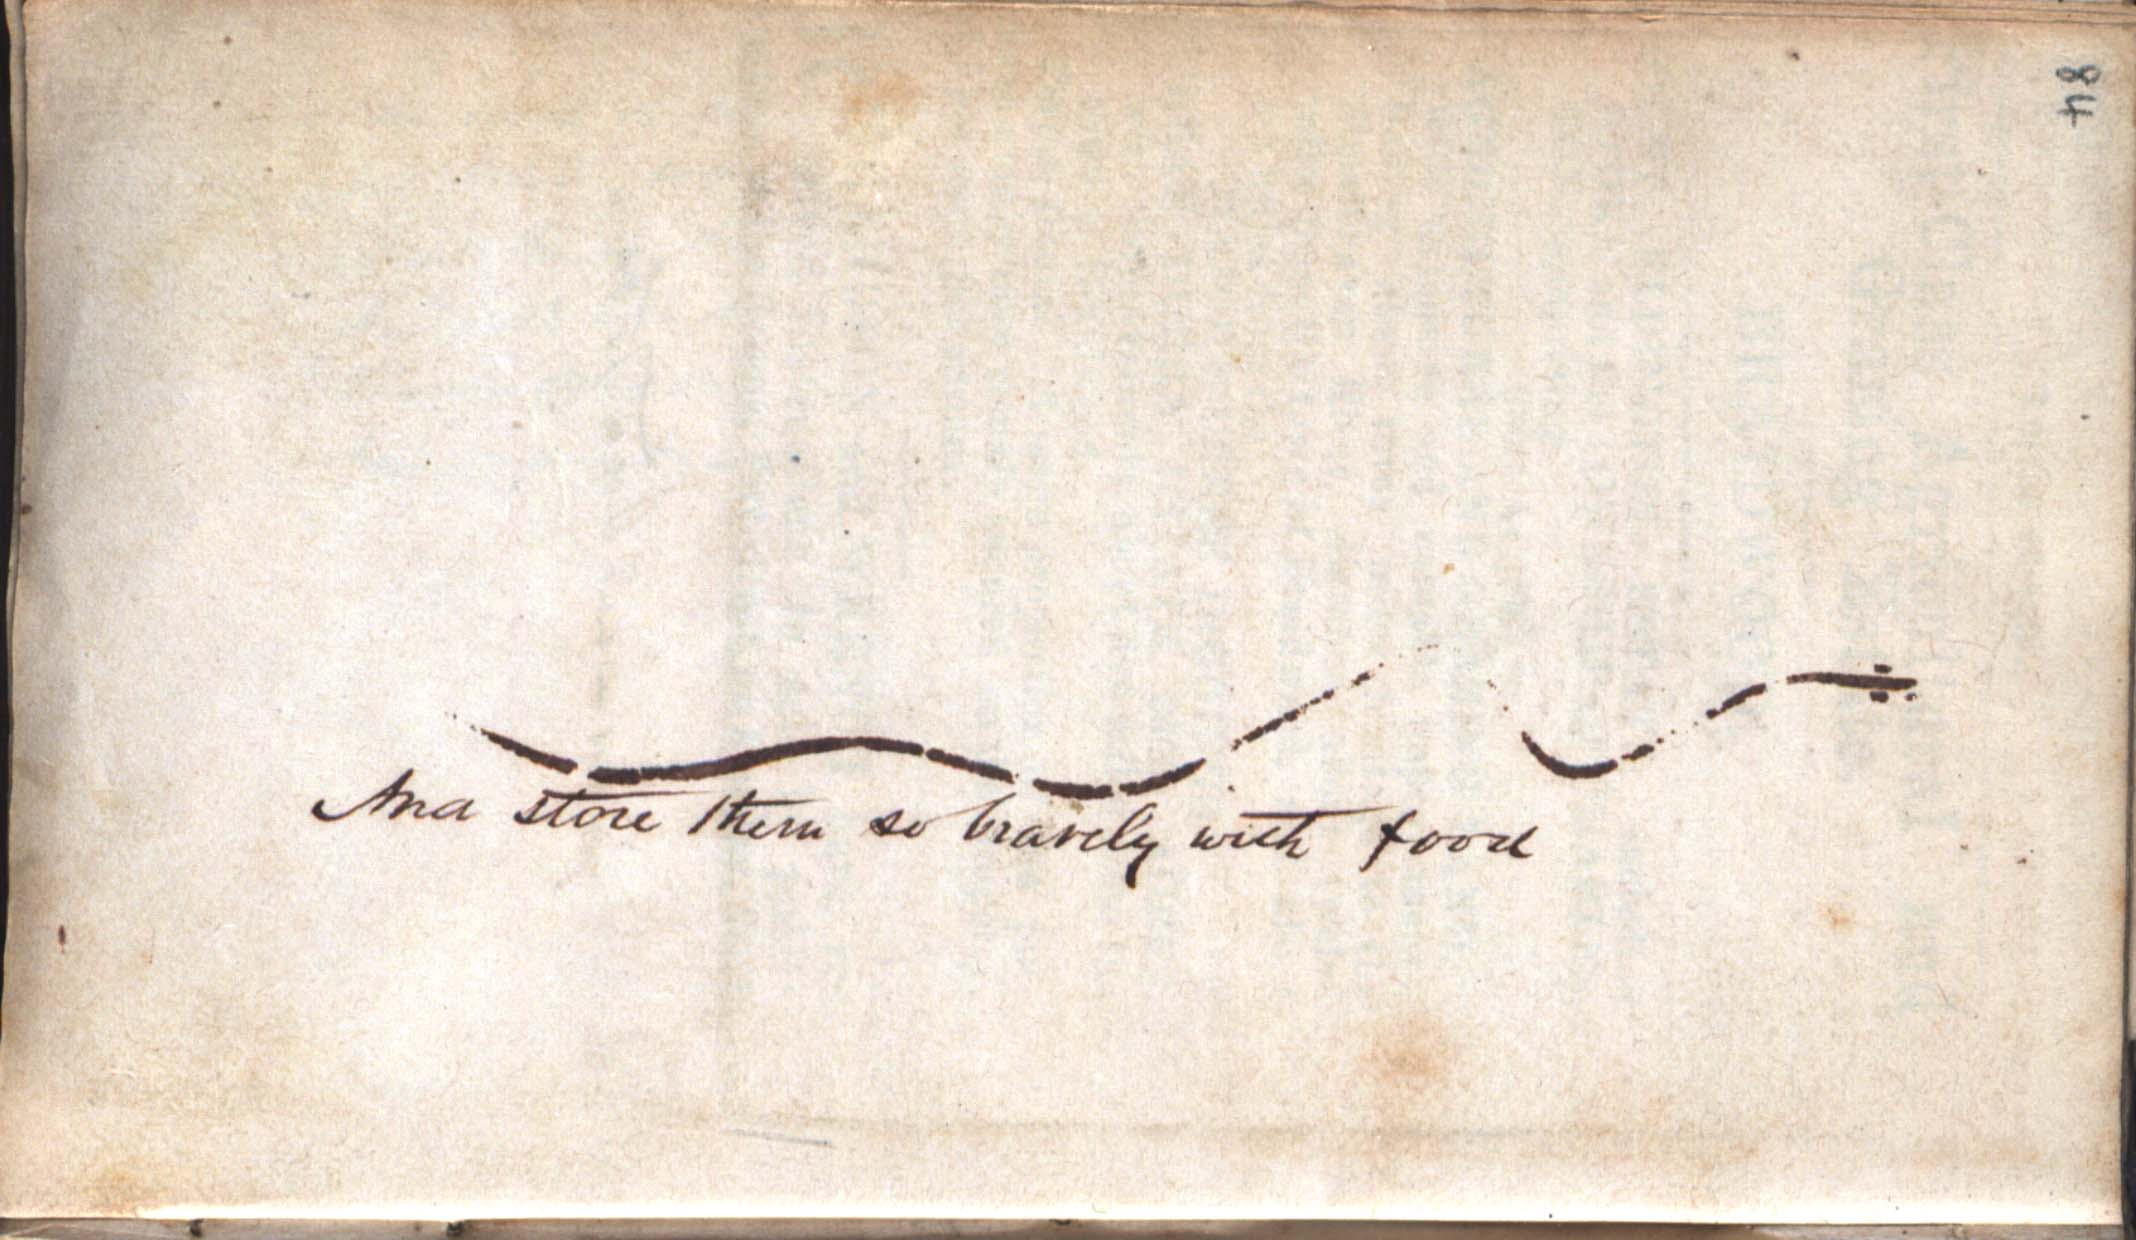 84
And store them so bravely with food